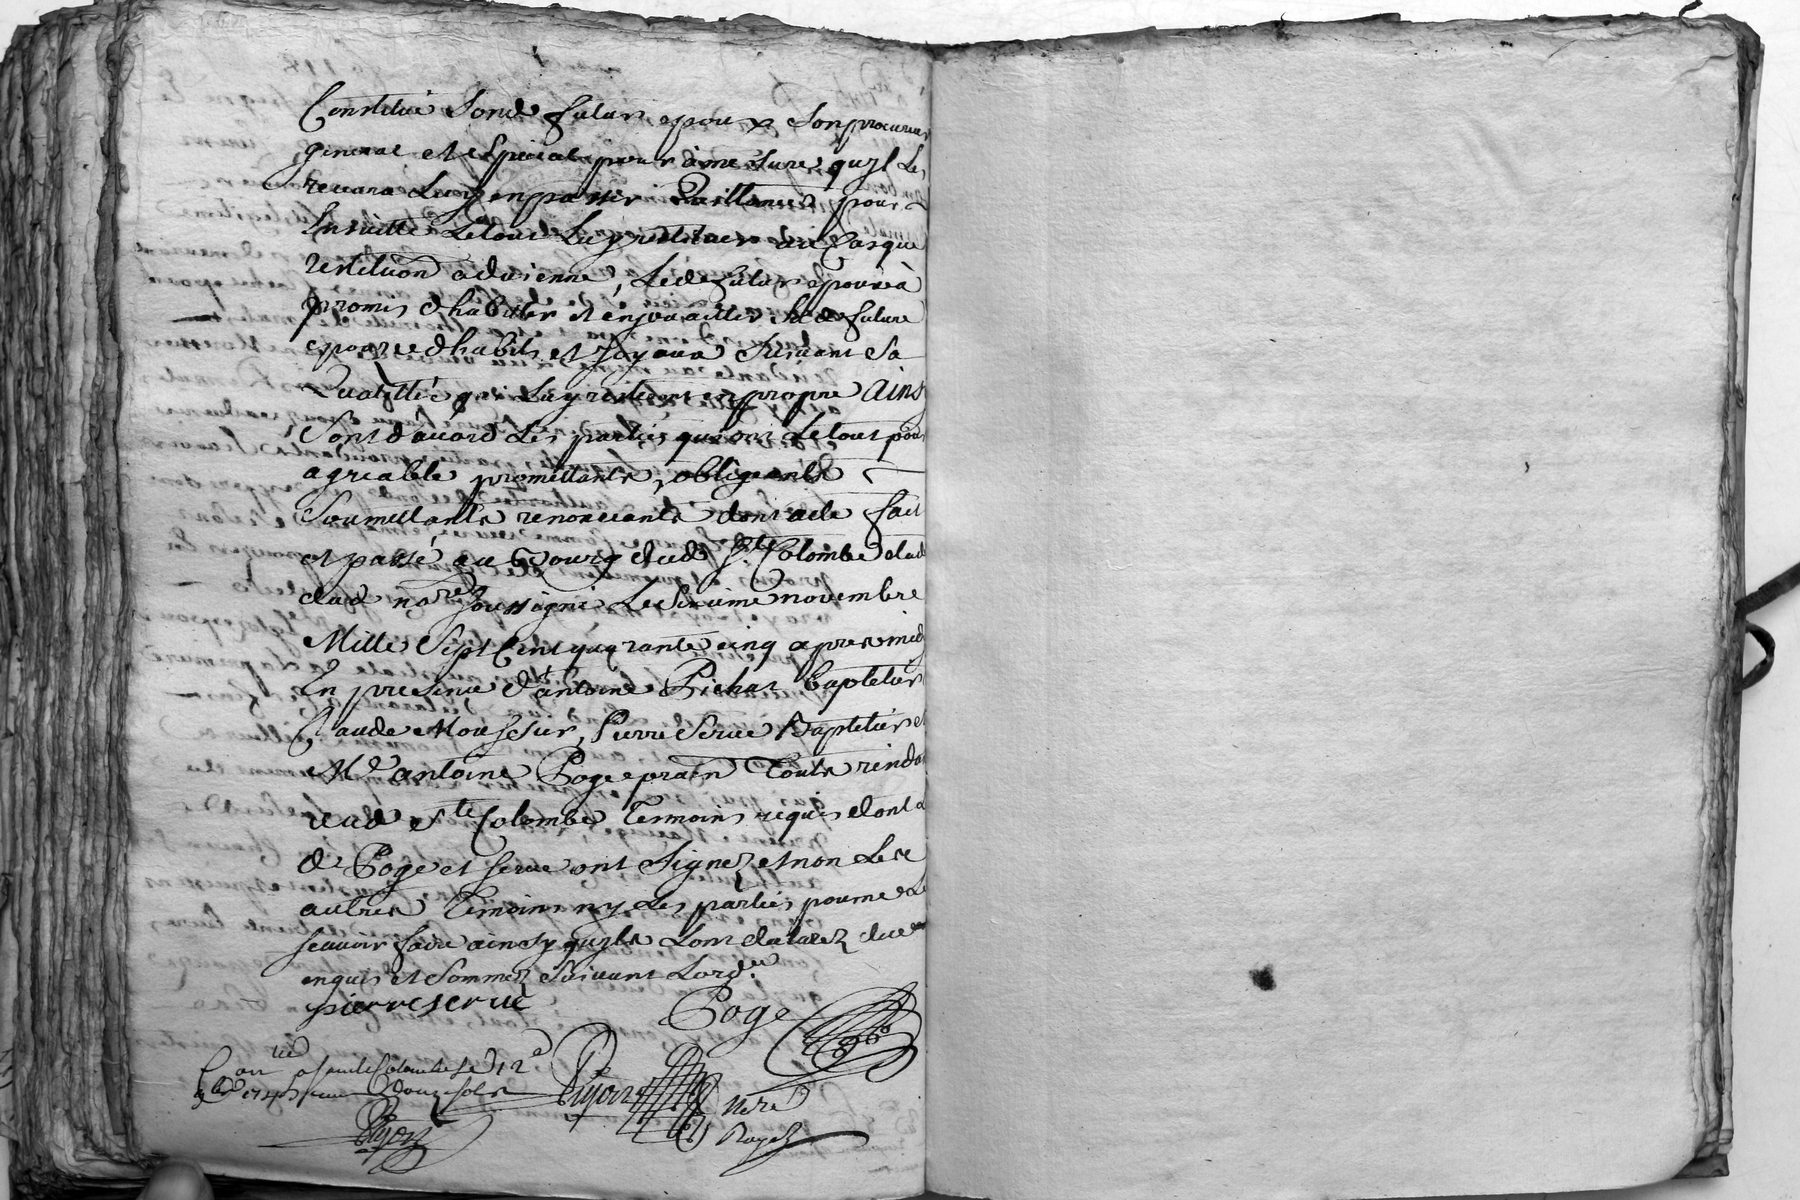 Constitué Sond futur epoux Son procureur
general et espécial pour à mesure quyl les
recevra Luy en passer quittances pour
Ensuitte Le tout Luy restituer au Cas que
restituon advienne, Led futur epoux à
promis d'habiller et enjouailler Lad future
epouze d'habits et Joyaux Suivant Sa
Quallitté qui Luy restiront en propre Ains
Sont d'accord Les parties qui ont Le tout pour
agreable promettants, obligeants
Soumettants renonceants dont acte fait
et passé au Bourg dud Ste Colombe Etude
dud nore Soussigné Le Sixième novembre
Mille Sept Cent quarante cinq apres midy
En presence d'antoine Pichat Taptetier
Claude Mousseur, Pierre Serve Taptetier et
Md antoine Poge prain Touts rindo
reud Ste Colombe Temoins requis dont L
d Poge et Serve ont Signez et non Les
autres Temoins ny Les parties pour ne Le
scavoir faire ainsy quyls L'ont declarez duem
enquis et Sommez Suivant L'ordce
pierre serve Poge
Conlé a Sainte Colombe Le 12e
9bre 1745 reçu douze sols
Pigon nore
Pigon Royal